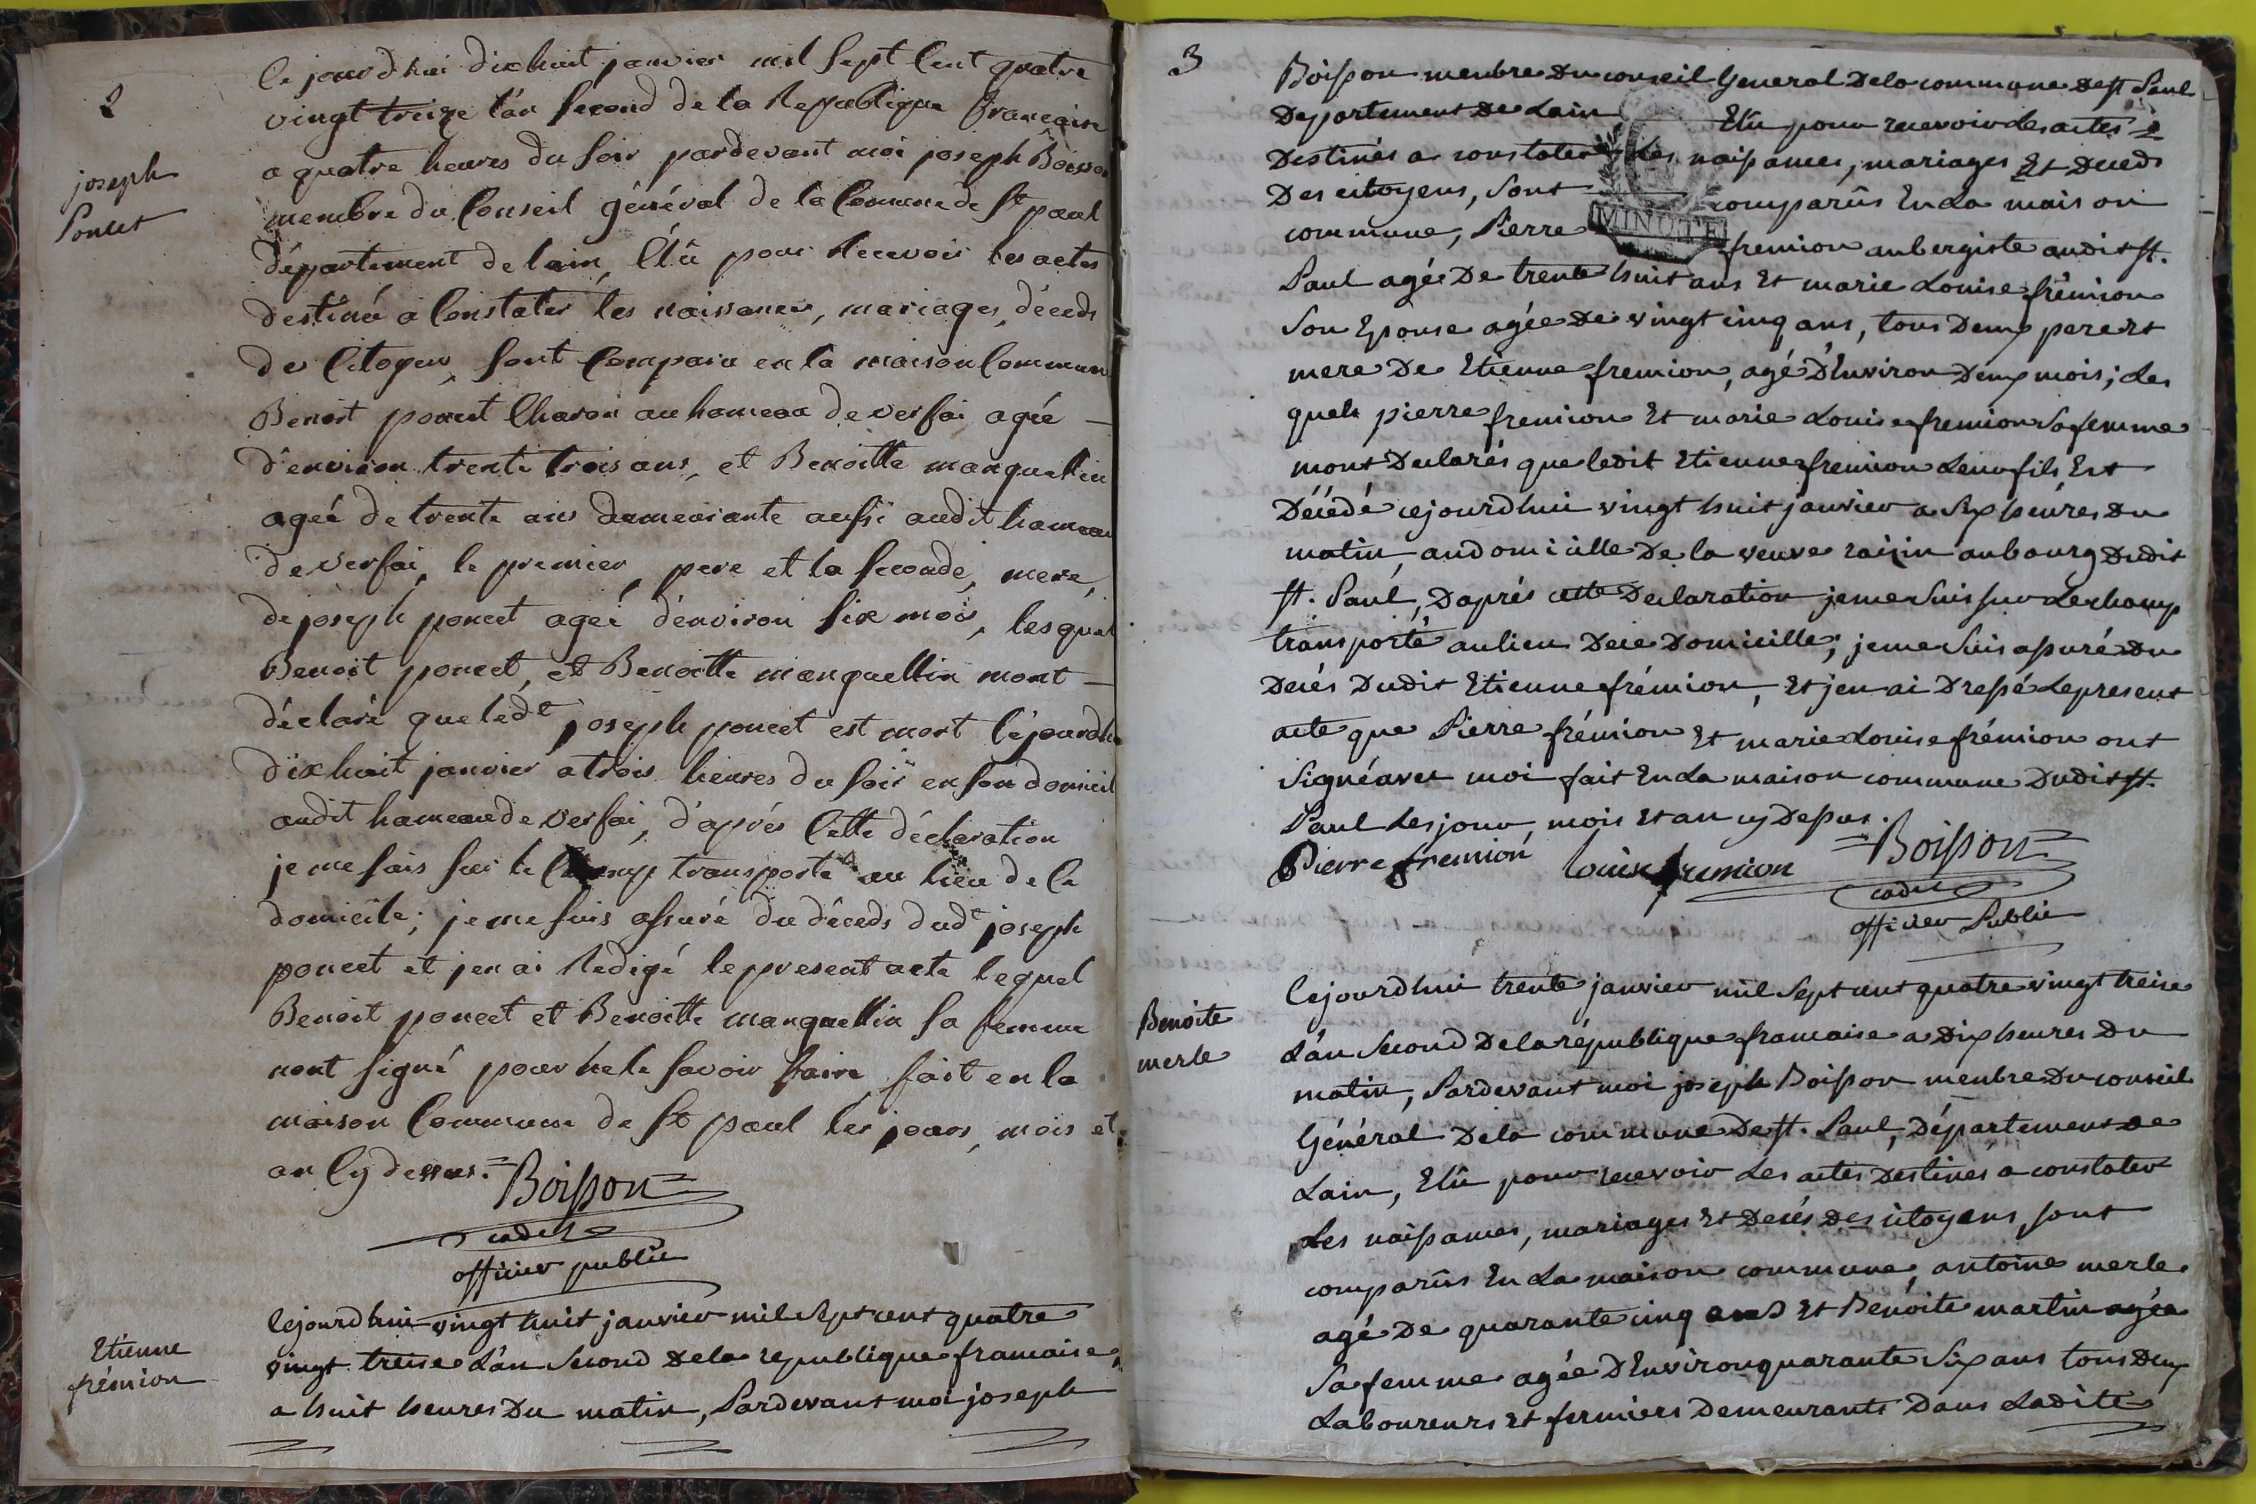 2
joseph
Poncet
Ce jourd'hui dix huit janvier mil sept Cent quatre
vingt treize l'an second de la Republique francaise
a quatre heures du soir pardevant moi joseph Boisson
membre du Conseil général de la Commune de St paul
département de lain, Elû pour Recevoir les actes
destiné a Constater les naissances, mariages, déceds
de Citoyen, sont Comparu en la maison Commun
Benoit poncet Charon au hameau de verfai agée
d'environ trente trois ans, et Benoitte manquellin
ageé de trente ans demeurante aussi audit hameau
de verfai, le premier, pere et la seconde, mere,
de joseph poncet ageé d'environ six mois, lesquel
Benoit poncet, et Benoitte manquellin mont
déclaré que ledt joseph poncet est mort Cejourdhu
dixhuit janvier a trois heures du soir en son domicil
audit hameau de Verfai, d'aprés Cette déclaration
je me suis sur le Champ transporté au lieu de Ce
domicile; je me suis assuré du déceds dudt joseph
poncet et jen ai Redigé le present acte lequel
Benoit poncet et Benoitte manquellin sa femme
nont signé pour ne le savoir faire, fait en la
maison Commune de St paul les jours, mois et
an Cy dessus. =Boisson=
cadet
officier public
Etienne
frémion
Cejourdhui vingt huit janvier mil sept cent quatre
vingt treise L'an second de la republique francaise,
a huit heures Du matin, Pardevant moi joseph
3
Boisson menbre Du conseil General De la commune De st Paul
Departement De Lain Elû pour recevoir Les actes
Destinés a constater Les naissances, mariages Et Deceds
Des citoyens, sont comparûs En La maison
MINUTE
commune, Pierre fremion aubergiste audit st.
Paul agée De trente huit ans Et marie Louise frémion
son Epouse agée De vingt cinq ans, tous Deux pere Et
mere De Etienne fremion, agé D'Environ Deux mois; Les
quels pierre fremion Et marie Louise fremion sa femme
mont Declarés que Ledit Etienne fremion Leur fils Est
Décédé cejourdhui vingt huit janvier a six heures Du
matin, au domicille De la veuve raisin au bourg Dudit
st. Paul, D'aprés cette Declaration je me suis sur Le champ
transporté au lieu De ce Domicille; je me suis assuré Du
Decés Dudit Etienne frémion, Et jen ai Dressé Le present
acte que Pierre frémion Et marie Louise frémion ont
signé avec moi fait En La maison commune Dudit st.
Paul Les jour, mois Et an cy Dessus.
Pierre fremion Louise fremion =Boisson=
cadet
officier Public
Benoite
merle
Cejourdhui trente janvier mil sept cent quatre vingt treise
L'an second De la république francaise a Dix heures Du
matin, Pardevant moi joseph Boisson menbre Du conseil
Général De la commune De st. Paul, Département De
Lain, Elû pour recevoir Les actes Destines a constater
Les naissances, mariages Et Decés Des citoyens, sont
comparûs En La maison commune, antoine merle
agé De quarante cinq ans Et Benoite martin agée
sa femme agée D'Environ quarante six ans tous Deux
Laboureurs Et fermiers Demeurants Dans Ladite